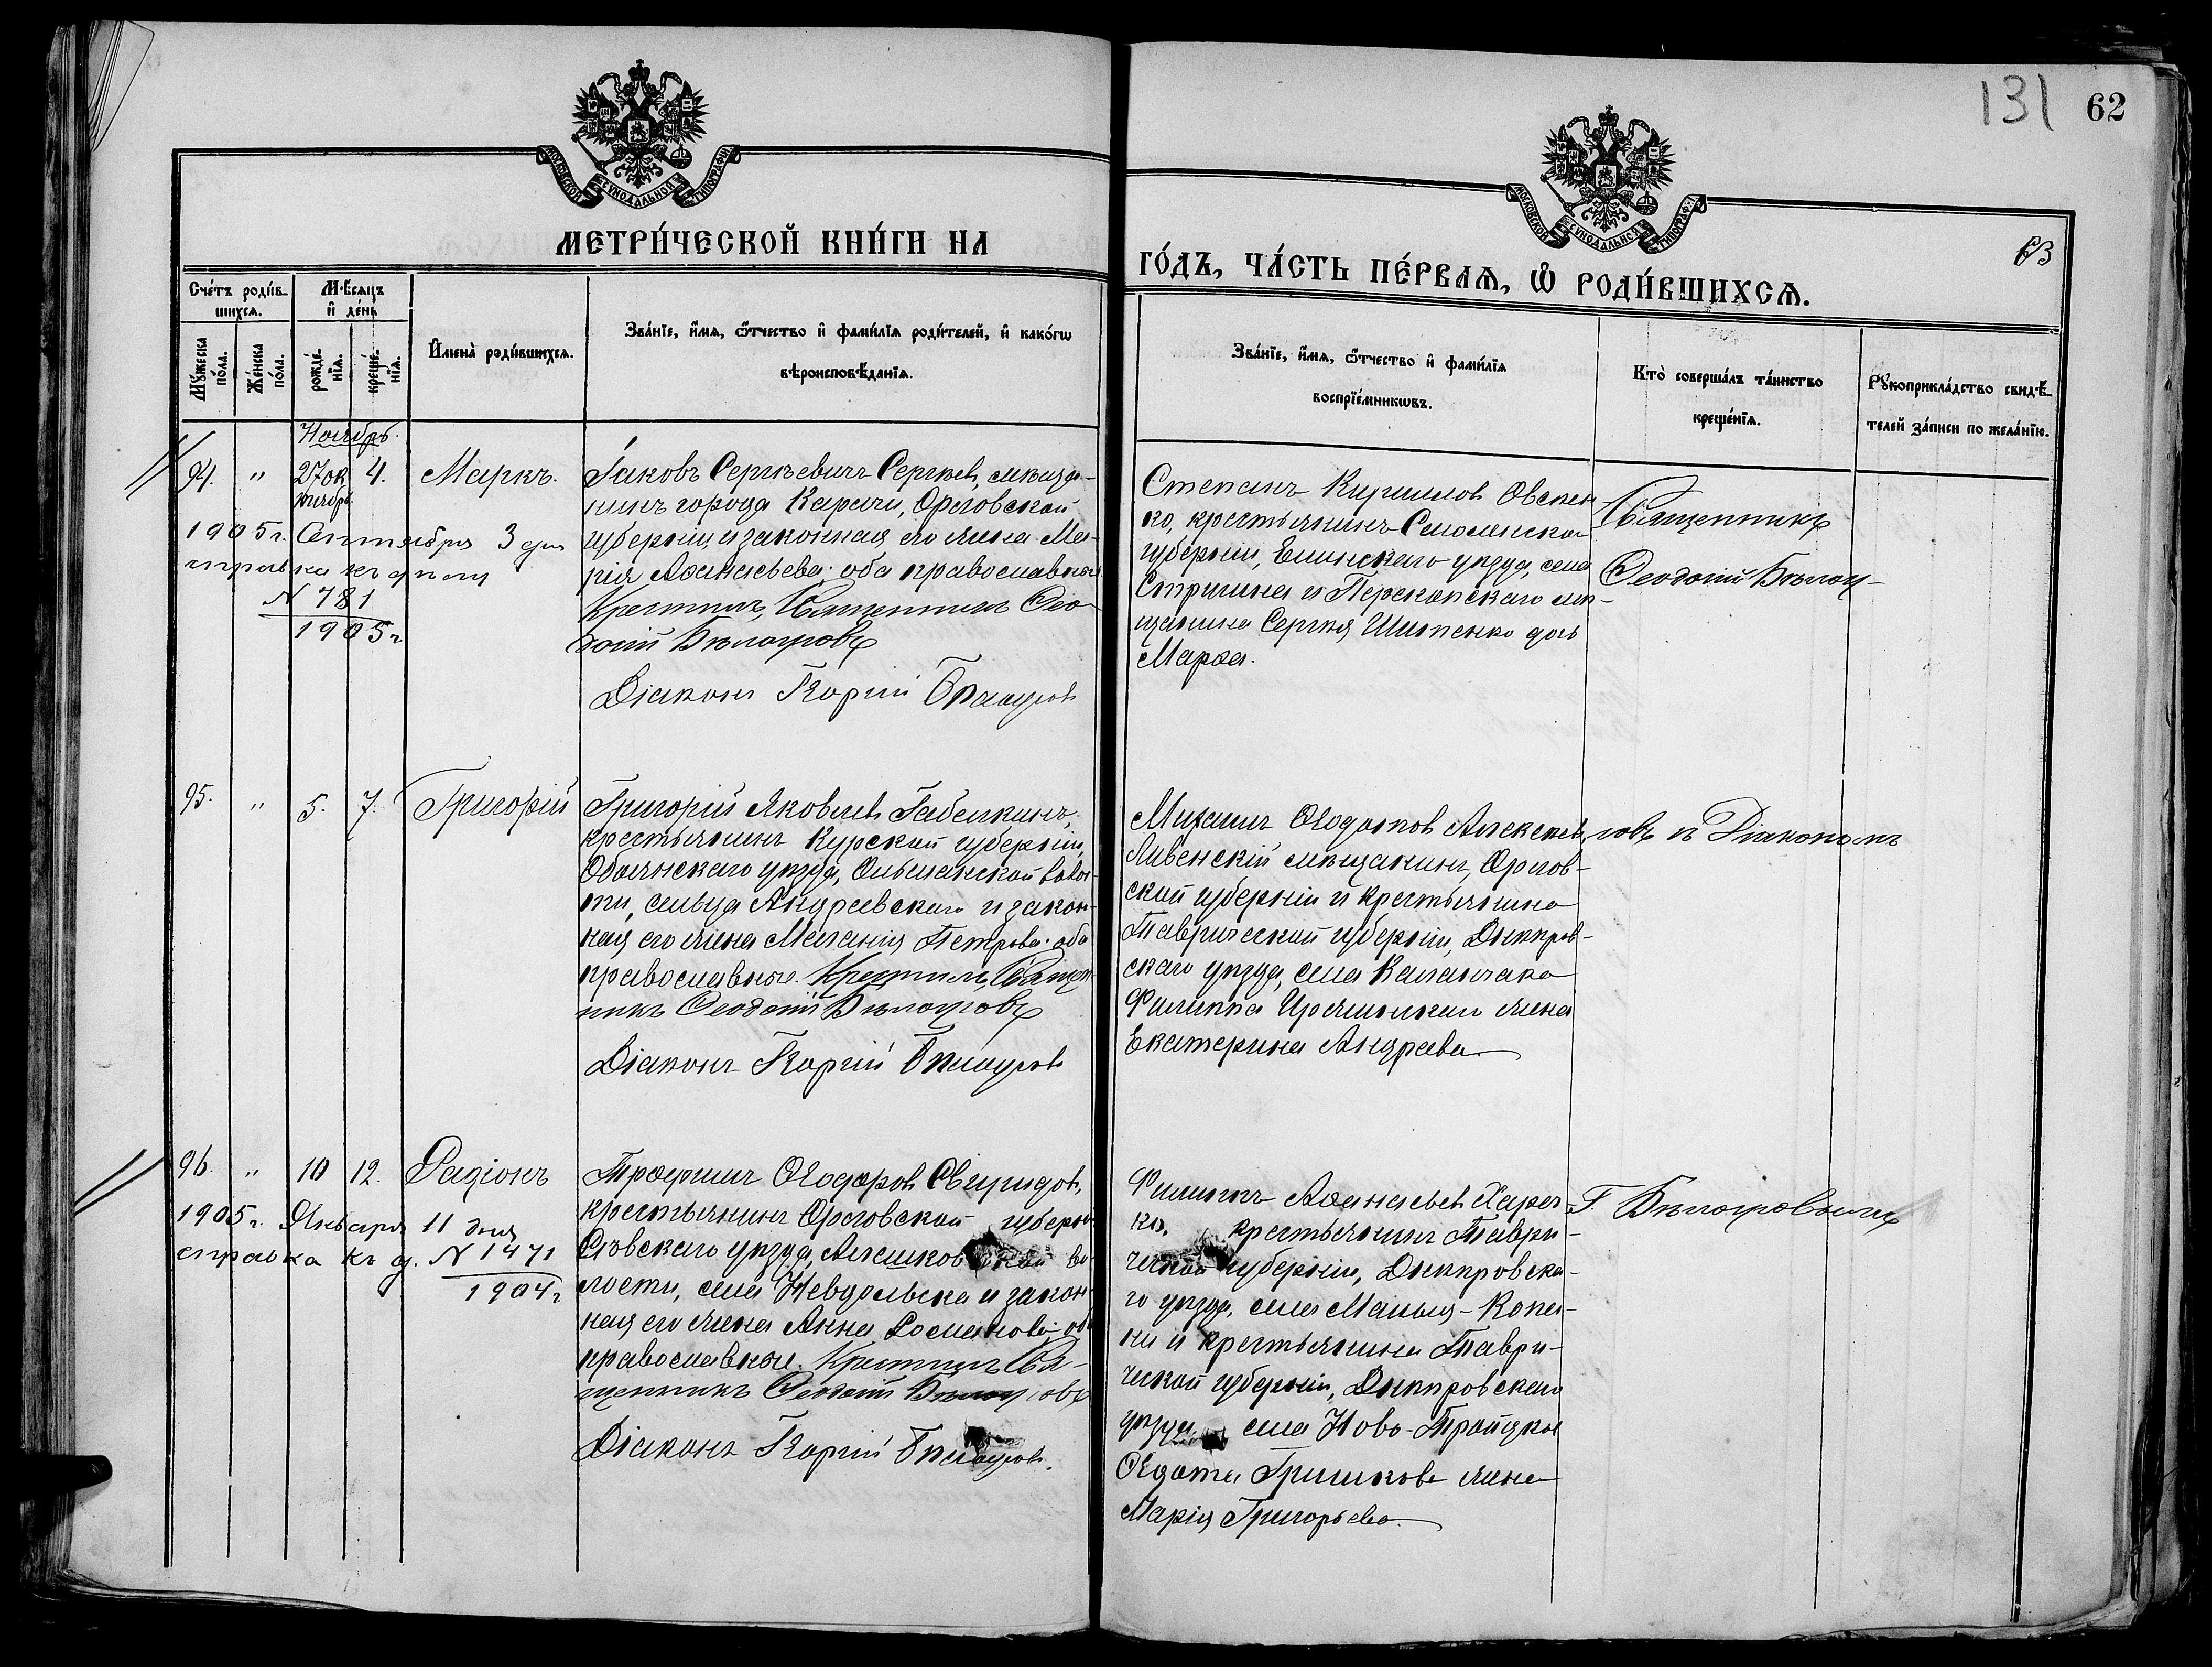 131 62
63
МОСКОВСКОЙ СѴНОДАЛЬНОЙ ТИПОГРАФІИ
МОСКОВСКОЙ СѴНОДАЛЬНОЙ ТИПОГРАФІИ
МЕТРИ́ЧЕСКОЙ КНИ́ГИ НА
ГО́ДЪ, ЧА́СТЬ ПЕ́РВАѦ, Ѡ҆ РОДИ́ВШИХСѦ.
Сче́тъ роди́в-
шихсѧ.
Мꙋ́жеска по́ла.
Же́нска по́ла.
Мѣ́сѧцъ
и҆ де́нь
рожде́-нїѧ.
креще́-нїѧ.
И҆мена̀ роди́вшихсѧ.
Зва́нїе, и҆́мѧ, ѻ҆́тчество и҆ фами́лїѧ роди́телей, и҆ како́гѡ
вѣроисповѣ́данїѧ.
Зва́нїе, и҆́мѧ, ѻ҆́тчество и҆ фами́лїѧ
воспрїе́мникѡвъ.
Кто̀ соверша́лъ та́инство
креще́нїѧ.
Рꙋкоприкла́дство свидѣ́-
телей за́писи по жела́нїю.
Ноябрь.
94. " 27 ок 4. Маркъ.
тября
1905 г. Сентября 3 дня
справка къ делу
N 781
1905 г
Іаковъ Сергѣевичъ Сергѣевъ, мѣща-
нинъ города Карачи, Орловской
губерніи, и законная его жена Ма-
рія Аѳанасьева; оба православные
Крестилъ, Священникъ Ѳео-
досій Бѣлоусовъ
Діаконъ Георгій Бѣлоусовъ
Степанъ Кириллов Овсен-
ко, крестьянинъ Смоленской
губерніи, Ельнскаго уѣзда, села
Стригина и Перекопскаго мѣ-
щанина Сергѣя Шитенко дочь
Марѳа.
Священникъ
Ѳеодосій Бѣлоу-
95. " 5. 7. Григорій
Григорій Яковлев Габелкинъ,
крестьянинъ Курской губерніи,
Обоянскаго уѣзда, Ольшанской волос-
ти, сельца Андреевскаго и закон-
ная его жена Меланія Петрова; оба
православные. Крестилъ, Священ-
никъ Ѳеодосій Бѣлоусовъ
Діаконъ Георгій Бѣлоусовъ
Михаилъ Ѳедотов Алексеевъ,
Ливенскій мѣщанинъ, Орлов-
ской губерніи и крестьянина
Таврической губерніи, Днѣпров-
скаго уѣзда, села Каланчака
Филиппа жена
Екатерина Андреева.
совъ съ Діакономъ
96. " 10 12. Радіонъ
1905 г. Января 11 дня
справка къ д. N 1471
1904 г
Трофимъ Ѳедоровъ Свиридовъ,
крестьянинъ Орловской губерніи
Сѣвскаго уѣзда, Алешковской во-
лости, села Невдольска и закон-
ная его жена Анна Романова; оба
православные. Крестилъ Свя-
щенникъ Ѳеодосій Бѣлоусовъ
Діаконъ Георгій Бѣлоусовъ.
Филиппъ Аѳанасьев Харч-
ко, крестьянинъ Таври-
ческой губерніи, Днѣпровска-
го уѣзда, села Малыя-Копа-
ни и крестьянина Таври-
ческой губерніи, Днѣпровскаго
уѣзда, села Ново-Троицкое
Ѳедота Гришкова жена
Марія Григорьева.
Г. Бѣлоусовымъ